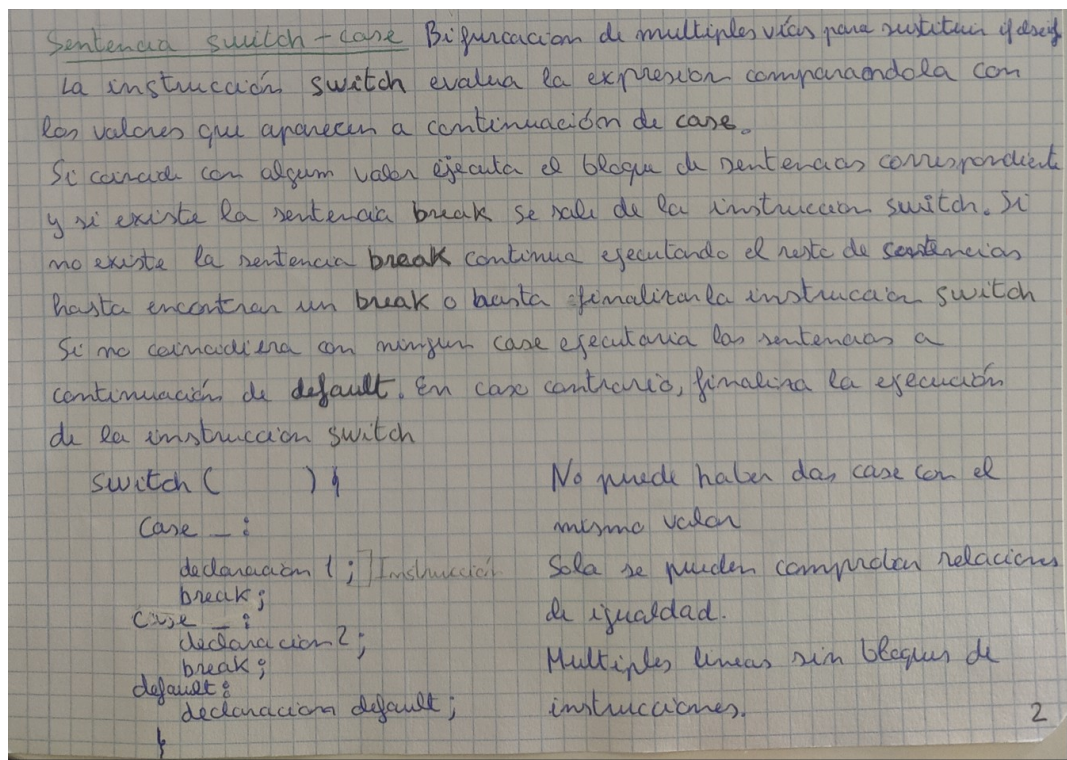 Sentencia switch-case Bifurcacion de multiples vías para sustituir if else if
La instrucción switch evalua la expresion comparandola con
los valores que aparecen a continuación de case.
Si coincide con algum valor ejecuta el bloque de sentencias correspondiente
y si existe la sentencia break se sale de la instruccion switch. Si
no existe la sentencia break continua ejecutando el resto de sentencias
hasta encontrar un break o hasta finalizar la instruccion switch
Si no coincidiera con ningun case ejecutaria las sentencias a
continuación de default. En caso contrario, finaliza la ejecución
de la instruccion switch
switch ( ) {
case _ :
declaracion 1; ] Instrucción
break;
case _ :
declaracion 2;
break;
default:
declaracion default;
}
No puede haber dos case con el
mismo valor
Solo se pueden comprobar relaciones
de igualdad.
Multiples lineas sin bloques de
instrucciones.
2